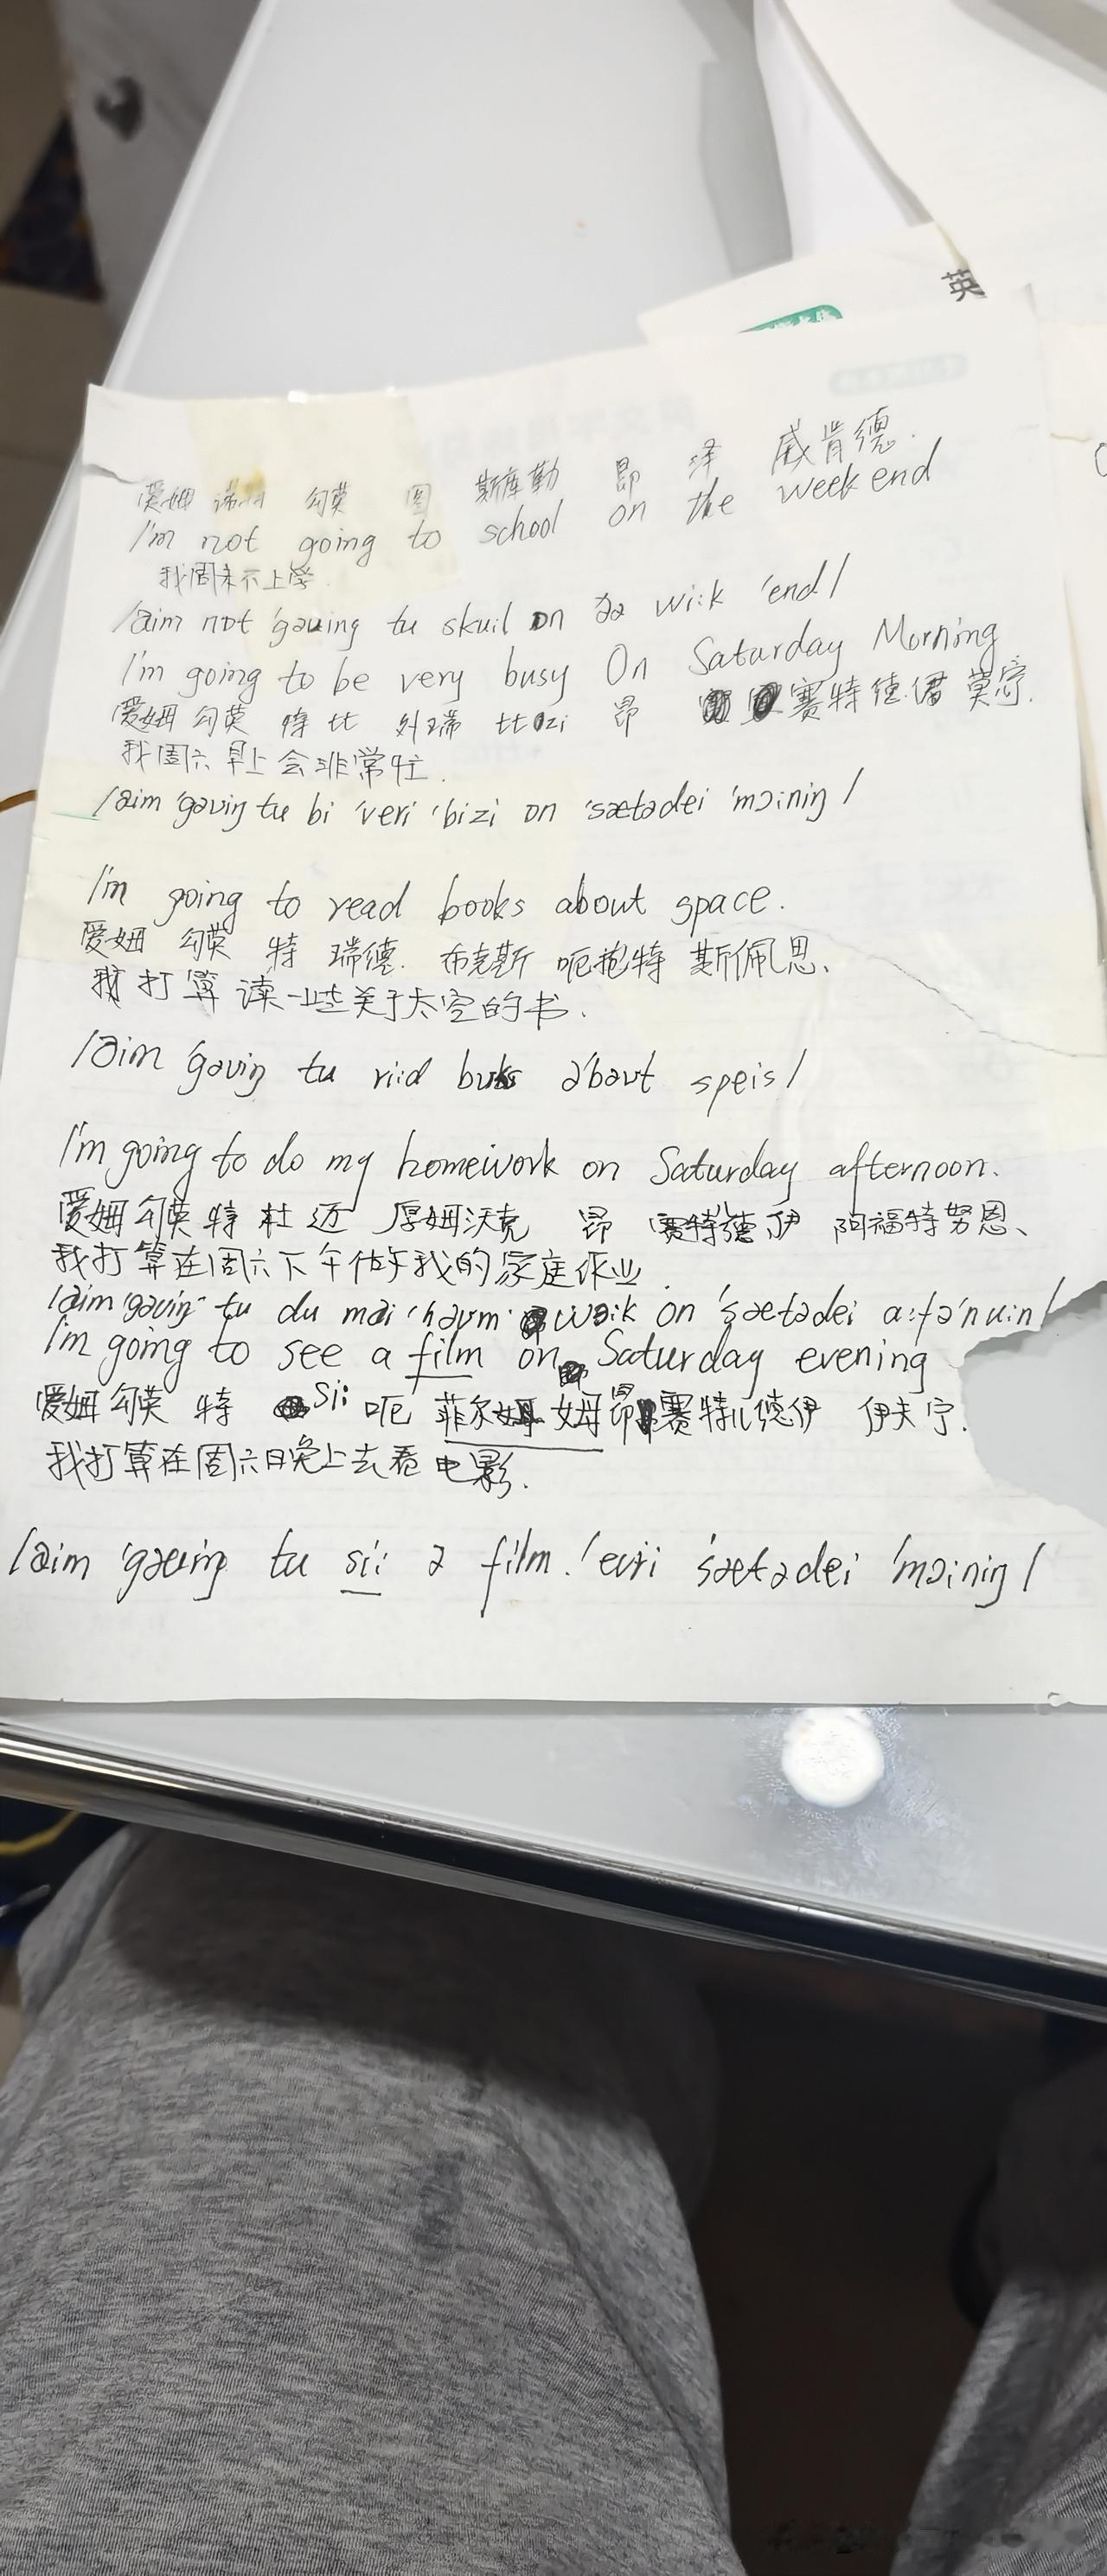 英
爱姆 勾莫 图 斯库勒 昂 泽 威肯德.
I'm not going to school on the weekend
我周末不上学.
/aim not 'gəuing tu skuːl ɒn ðə wiːk 'end/
I'm going to be very busy On Saturday Morning
爱姆 勾莫 特 比 外瑞 比zi 昂 赛特德 莫宁.
我周六早上会非常忙.
/aim 'gəʊiŋ tu bi 'veri 'bizi ɒn 'sætədei 'mɔːniŋ/
I'm going to read books about space.
爱姆 勾莫 特 瑞德. 布克斯 呃抱特 斯佩思、
我打算读一些关于太空的书.
/aim 'gəʊiŋ tu riːd buks ə'baʊt speis/
I'm going to do my homework on Saturday afternoon.
爱姆 勾莫 特 杜 迈 厚姆沃克 昂 赛特德伊 阿福特努恩、
我打算在周六下午做我的家庭作业.
/aim 'gəʊiŋ tu du mai 'həʊm wɜːk on 'sætədei aːftə'nuːn/
I'm going to see a film on Saturday evening
爱姆 勾莫 特 Siː 呃 菲尔姆 昂 赛特儿德伊 伊夫宁.
我打算在周六日晚上去看电影.
/aim 'gəuiŋ tu siː ə film. 'evri 'sætədei 'mɔːniŋ/